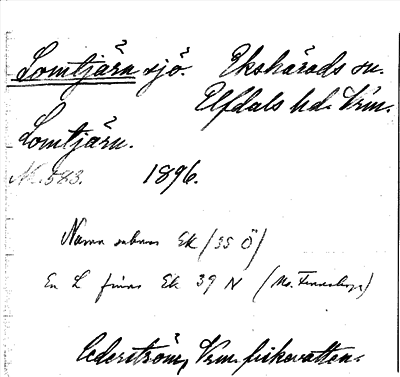 Lomtjärn sjö. Ekshärads sn.
Elfdals hd. Vrm.
Lomtjärn.
Nr. 583. 1896.
Namn saknas Ek (35 Ö)
En L finns Ek 39 N (No.
Cederström, Vrm. fiskevatten.